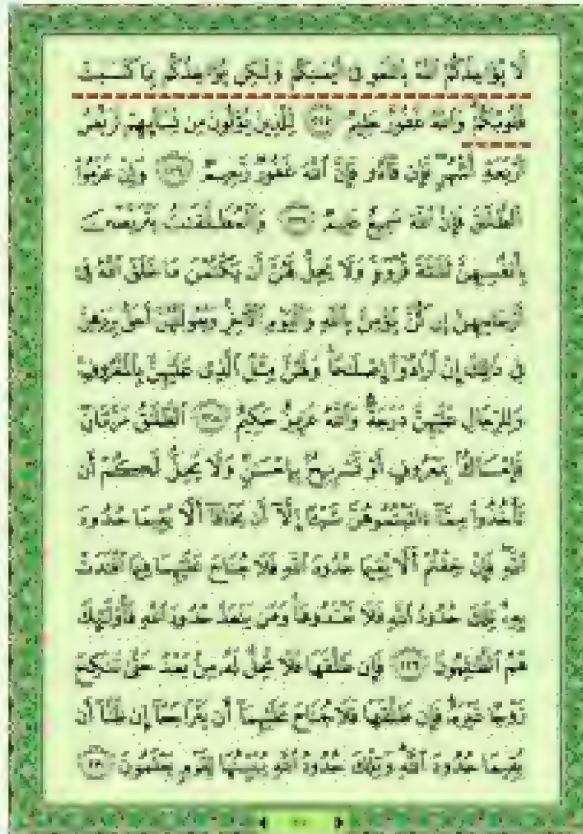 لَّا يُؤَاخِذُكُمُ ٱللَّهُ بِٱللَّغْوِ فِىٓ أَيْمَٰنِكُمْ وَلَٰكِن يُؤَاخِذُكُم بِمَا كَسَبَتْ
قُلُوبُكُمْ وَٱللَّهُ غَفُورٌ حَلِيمٌ ٢٢٥ لِّلَّذِينَ يُؤْلُونَ مِن نِّسَآئِهِمْ تَرَبُّصُ
أَرْبَعَةِ أَشْهُرٍ فَإِن فَآءُو فَإِنَّ ٱللَّهَ غَفُورٌ رَّحِيمٌ ٢٢٦ وَإِنْ عَزَمُوا۟
ٱلطَّلَٰقَ فَإِنَّ ٱللَّهَ سَمِيعٌ عَلِيمٌ ٢٢٧ وَٱلْمُطَلَّقَٰتُ يَتَرَبَّصْنَ
بِأَنفُسِهِنَّ ثَلَٰثَةَ قُرُوٓءٍ وَلَا يَحِلُّ لَهُنَّ أَن يَكْتُمْنَ مَا خَلَقَ ٱللَّهُ فِىٓ
أَرْحَامِهِنَّ إِن كُنَّ يُؤْمِنَّ بِٱللَّهِ وَٱلْيَوْمِ ٱلْءَاخِرِ وَبُعُولَتُهُنَّ أَحَقُّ بِرَدِّهِنَّ
فِى ذَٰلِكَ إِنْ أَرَادُوٓا۟ إِصْلَٰحًا وَلَهُنَّ مِثْلُ ٱلَّذِى عَلَيْهِنَّ بِٱلْمَعْرُوفِ
وَلِلرِّجَالِ عَلَيْهِنَّ دَرَجَةٌ وَٱللَّهُ عَزِيزٌ حَكِيمٌ ٢٢٨ ٱلطَّلَٰقُ مَرَّتَانِ
فَإِمْسَاكٌۢ بِمَعْرُوفٍ أَوْ تَسْرِيحٌۢ بِإِحْسَٰنٍ وَلَا يَحِلُّ لَكُمْ أَن
تَأْخُذُوا۟ مِمَّآ ءَاتَيْتُمُوهُنَّ شَيْـًٔا إِلَّآ أَن يَخَافَآ أَلَّا يُقِيمَا حُدُودَ
ٱللَّهِ فَإِنْ خِفْتُمْ أَلَّا يُقِيمَا حُدُودَ ٱللَّهِ فَلَا جُنَاحَ عَلَيْهِمَا فِيمَا ٱفْتَدَتْ
بِهِۦ تِلْكَ حُدُودُ ٱللَّهِ فَلَا تَعْتَدُوهَا وَمَن يَتَعَدَّ حُدُودَ ٱللَّهِ فَأُو۟لَٰٓئِكَ
هُمُ ٱلظَّٰلِمُونَ ٢٢٩ فَإِن طَلَّقَهَا فَلَا تَحِلُّ لَهُۥ مِنۢ بَعْدُ حَتَّىٰ تَنكِحَ
زَوْجًا غَيْرَهُۥ فَإِن طَلَّقَهَا فَلَا جُنَاحَ عَلَيْهِمَآ أَن يَتَرَاجَعَآ إِن ظَنَّآ أَن
يُقِيمَا حُدُودَ ٱللَّهِ وَتِلْكَ حُدُودُ ٱللَّهِ يُبَيِّنُهَا لِقَوْمٍ يَعْلَمُونَ ٢٣٠